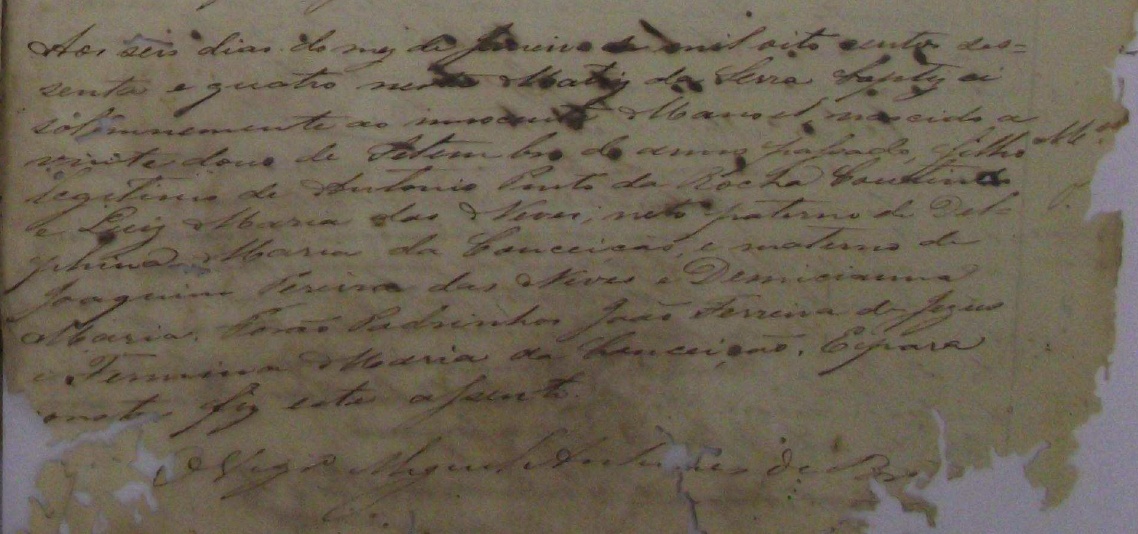 Aos seis dias do mez de Janeiro de mil oito cento ses=
senta e quatro nesta Matriz da Serra baptizei
solemnemente ao innocente Manoel, nascido a
vinte dous de Setembro do anno passado, filho
legitimo de Antonio Pinto da Rocha Coutinho
e Luiza Maria das Neves; neto paterno de Del-
phina Maria da Conceição, e materno de
Joaquim Pereira das Neves e Demicianna
Maria. Forão Padrinhos João Ferreira de Jezus
e Firmina Maria da Conceição. E para
constar fiz este assento.
O Vigr.º Miguel Antunes de